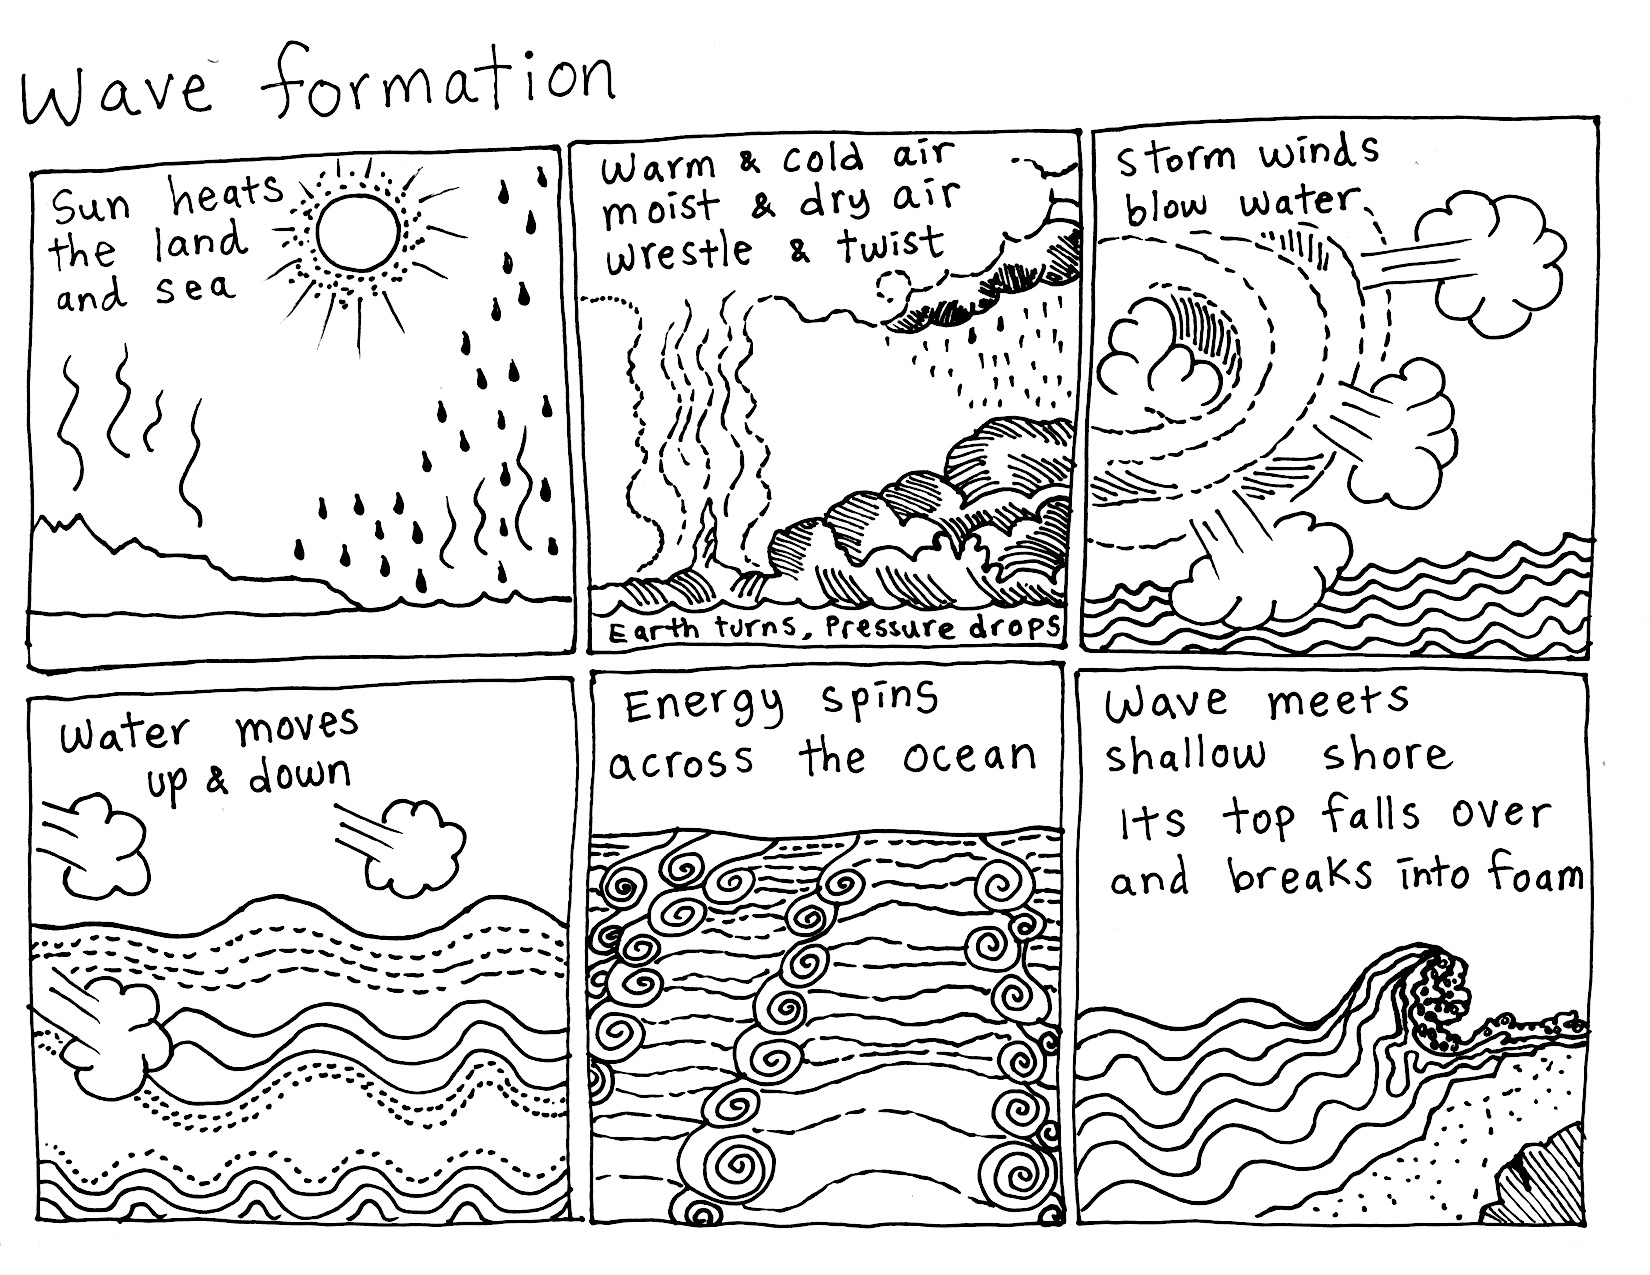 Wave formation
Sun heats
the land
and sea
Warm & cold air
moist & dry air
wrestle & twist
Earth turns, Pressure drops
Storm winds
blow water
Water moves
up & down
Energy spins
across the ocean
Wave meets
shallow shore
Its top falls over
and breaks into foam